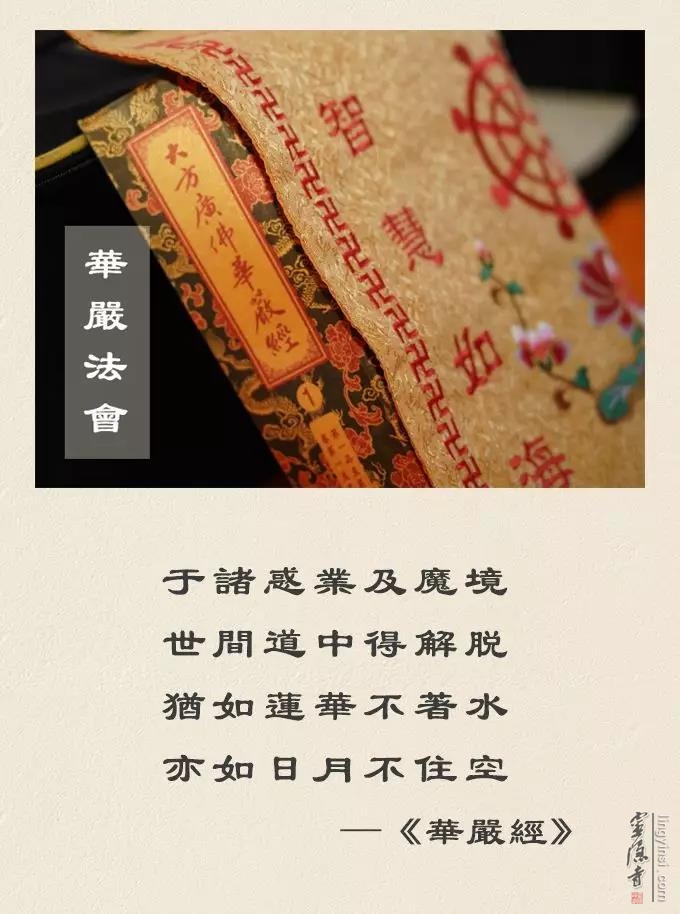 大方廣佛華嚴經
1
智慧如海
華嚴法會
于諸惑業及魔境
世間道中得解脱
猶如蓮華不著水
亦如日月不住空
—《華嚴經》
靈隱寺
lingyinsi.com